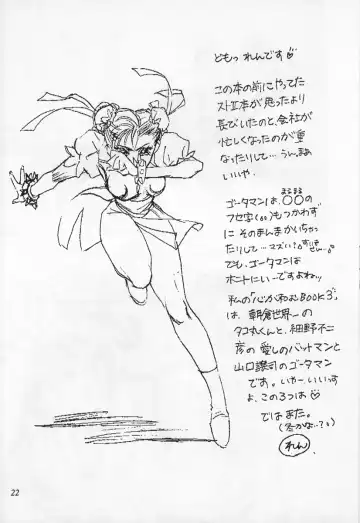 どもっ れんです
この本の前にやってた
ストⅡ本が思ったより
長びいたのと、会社が
忙しくなったのが重
なったりして…うん、まぁ
いいや。
ゴータマンは、〇〇の
まるまる
フセ字(〇〇)もつかわず
に そのまんまかいちゃっ
たりして…マズい？
でも、ゴータマンは
ホントにいーですよねっ
私の「心が和むBOOK3」
は、朝倉世界一の
タコ丸くんと、細野不二
彦の愛しのバットマンと
山口譲司のゴータマン
です。いやー、いいっす
よ、この3つは
ではまた。
(冬かな…？)
れん
22